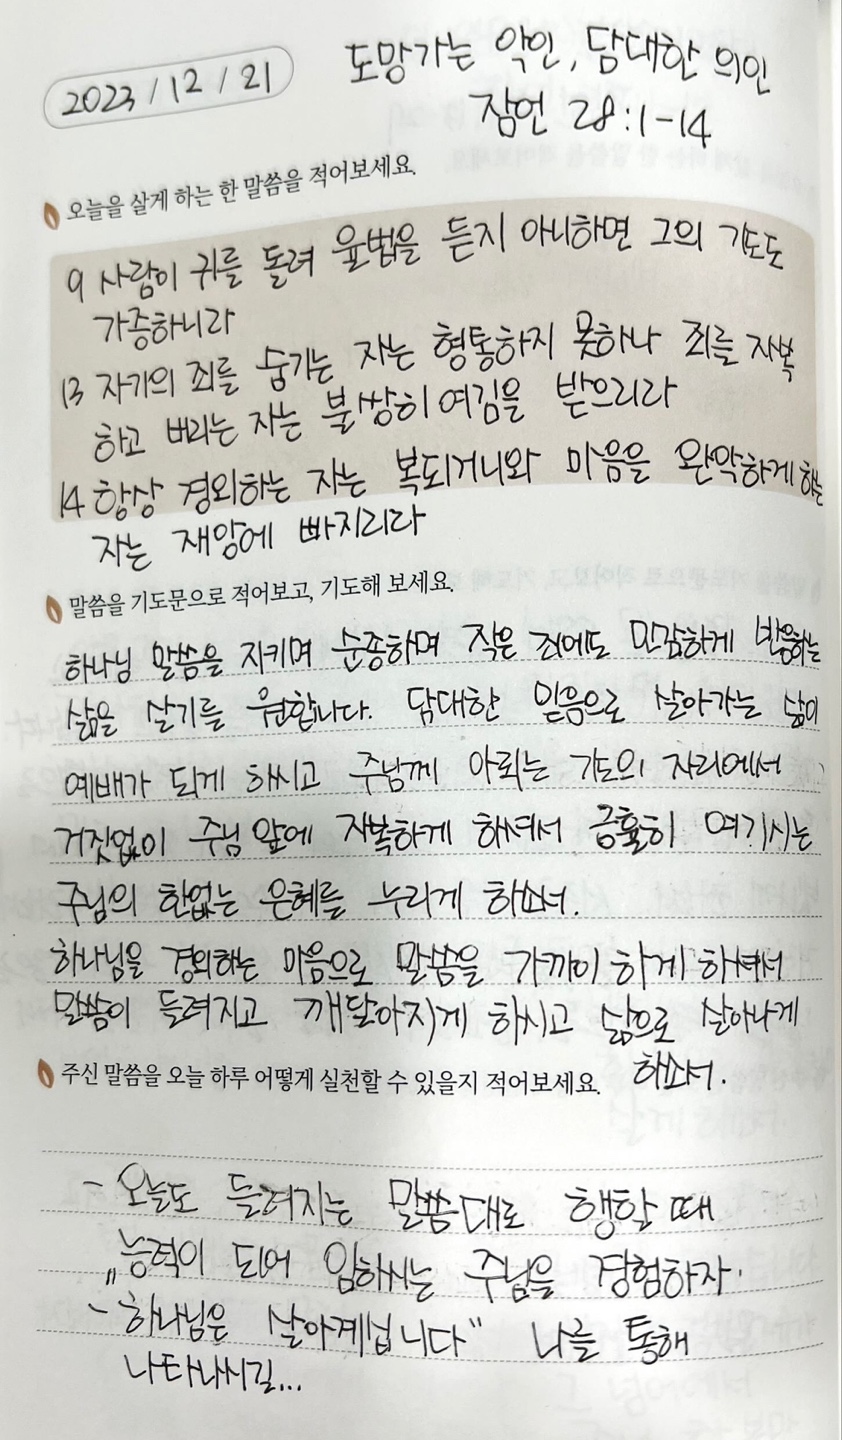 2023 / 12 / 21
도망가는 악인, 담대한 의인
잠언 28:1-14
오늘을 살게 하는 한 말씀을 적어보세요.
9 사람이 귀를 돌려 율법을 듣지 아니하면 그의 기도도
가증하니라
13 자기의 죄를 숨기는 자는 형통하지 못하나 죄를 자복
하고 버리는 자는 불쌍히 여김을 받으리라
14 항상 경외하는 자는 복되거니와 마음을 완악하게 하는
자는 재앙에 빠지리라
말씀을 기도문으로 적어보고, 기도해 보세요.
하나님 말씀을 지키며 순종하며 작은 죄에도 민감하게 반응하는
삶을 살기를 원합니다. 담대한 믿음으로 살아가는 삶이
예배가 되게 하시고 주님께 아뢰는 기도의 자리에서
거짓없이 주님 앞에 자복하게 하셔서 긍휼히 여기시는
주님의 한없는 은혜를 누리게 하소서.
하나님을 경외하는 마음으로 말씀을 가까이 하게 하셔서
말씀이 들려지고 깨달아지게 하시고 삶으로 살아나게
하소서.
주신 말씀을 오늘 하루 어떻게 실천할 수 있을지 적어보세요.
- 오늘도 들려지는 말씀대로 행할 때
능력이 되어 임하시는 주님을 경험하자.
- "하나님은 살아계십니다" 나를 통해
나타나시길...